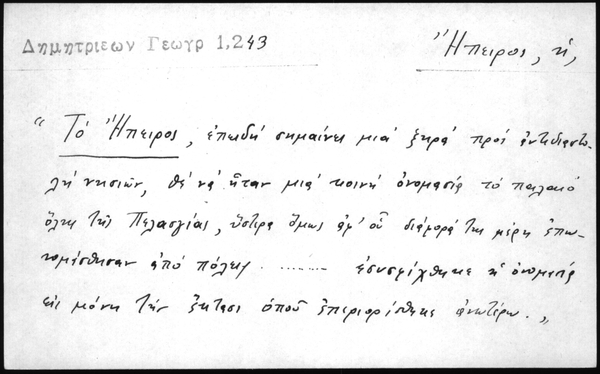 Δημητριεων Γεωγρ 1,243
Ἤπειρος, ἡ,
"Τὸ Ἤπειρος, ἐπειδὴ σημαίνει μιὰ ξηρὰ πρὸς ἀντιδιαστο-
λὴ νησιῶν, θὲ νὰ ἦταν μιὰ κοινὴ ὀνομασία τὸ παλαιὸ
ὅλης τῆς Πελασγίας, ὕστερα ὅμως ἀφ' οὗ διάφορά της μέρη ἐπω-
νομάσθησαν ἀπὸ πόλεις ........ ἐσυσφίχθηκε ἡ ὀνομασία
εἰς μόνη τὴν ἔκτασι ὁποῦ ἐπεριορίσθηκε ἀνωτέρω."